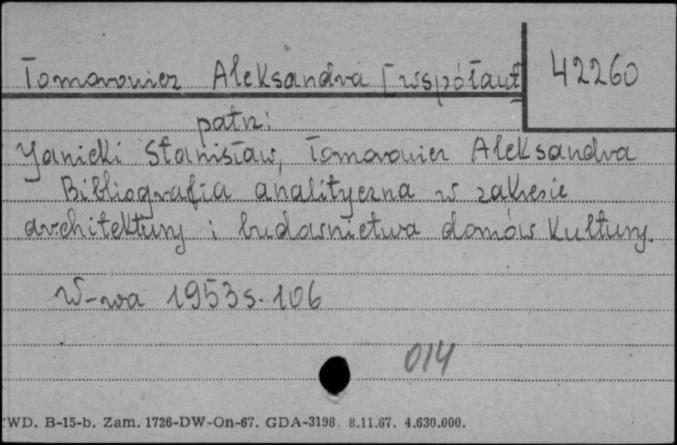 Tomorowicz Aleksandra [współaut]
42260
patrz:
Janicki Stanisław, Tomorowicz Aleksandra
Bibliografia analityczna w zakresie
architektury i budownictwa domów Kultury.
W-wa 1953 s. 106
014
WD. B-15-b. Zam. 1726-DW-On-67. GDA-3198. 8.11.67. 4.630.000.